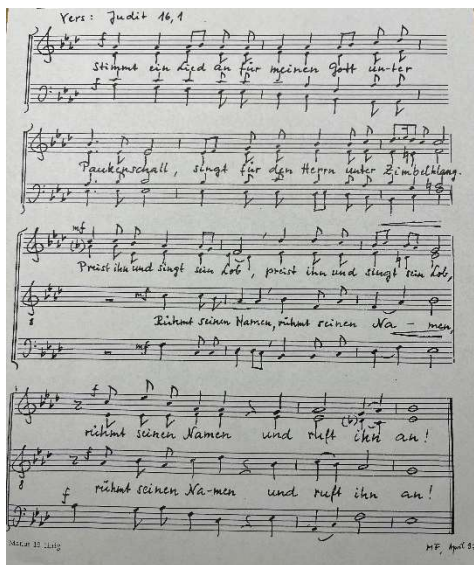 Vers: Judit 16,1
f
Stimmt ein Lied an für meinen Gott un-ter
f
Paukenschall, singt für den Herrn unter Zimbelklang.
mf
Preist ihn und singt sein Lob, preist ihn und singt sein Lob,
mf
Rühmt seinen Namen, rühmt seinen Na - men,
mf
f
rühmt seinen Namen und ruft ihn an!
f
rühmt seinen Na-men und ruft ihn an!
f
MF, April